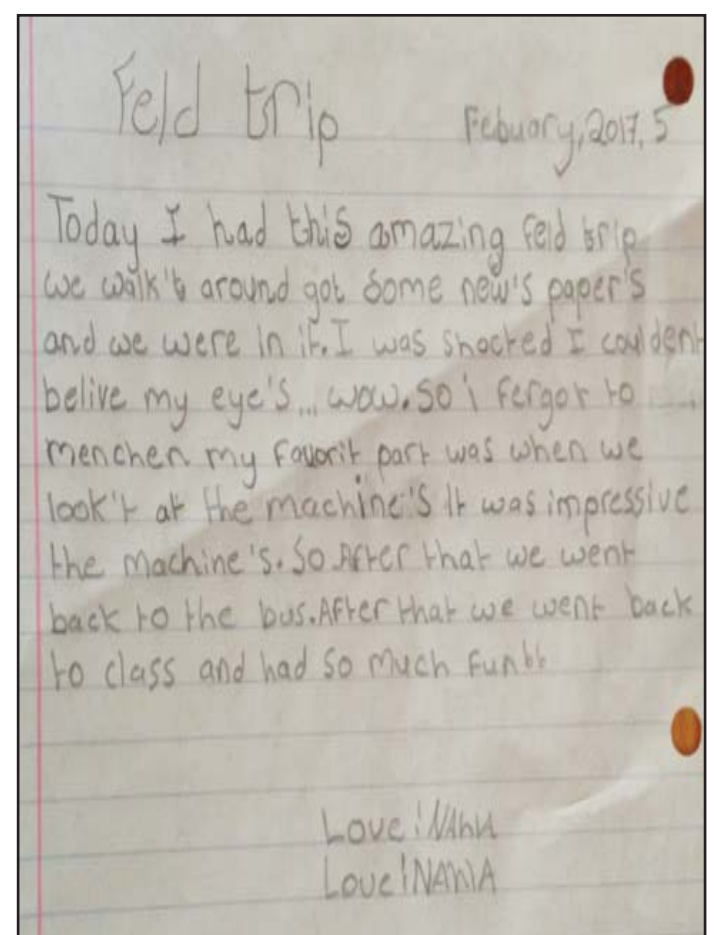 Feld trip
Febuary, 2017, 5
Today I had this amazing feld trip
we walk't around got some new's paper's
and we were in it. I was shocked I coulden't
belive my eye's... wow. So i fergot to
menchen my favorit part was when we
look't at the machine's It was impressive
the machine's. So After that we went
back to the bus. After that we went back
to class and had so much fun
Love!
Love!